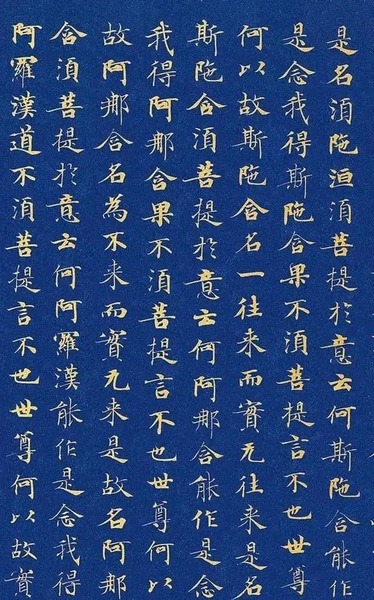 是名湏陁洹湏菩提於意云何斯陁含能作
是念我得斯陁含果不湏菩提言不也世尊
何以故斯陁含名一往来而實无往来是名
斯陁含湏菩提於意云何阿那含能作是念
我得阿那含果不湏菩提言不也世尊何以
故阿那含名為不来而實无来是故名阿那
含湏菩提於意云何阿羅漢能作是念我得
阿羅漢道不湏菩提言不也世尊何以故實